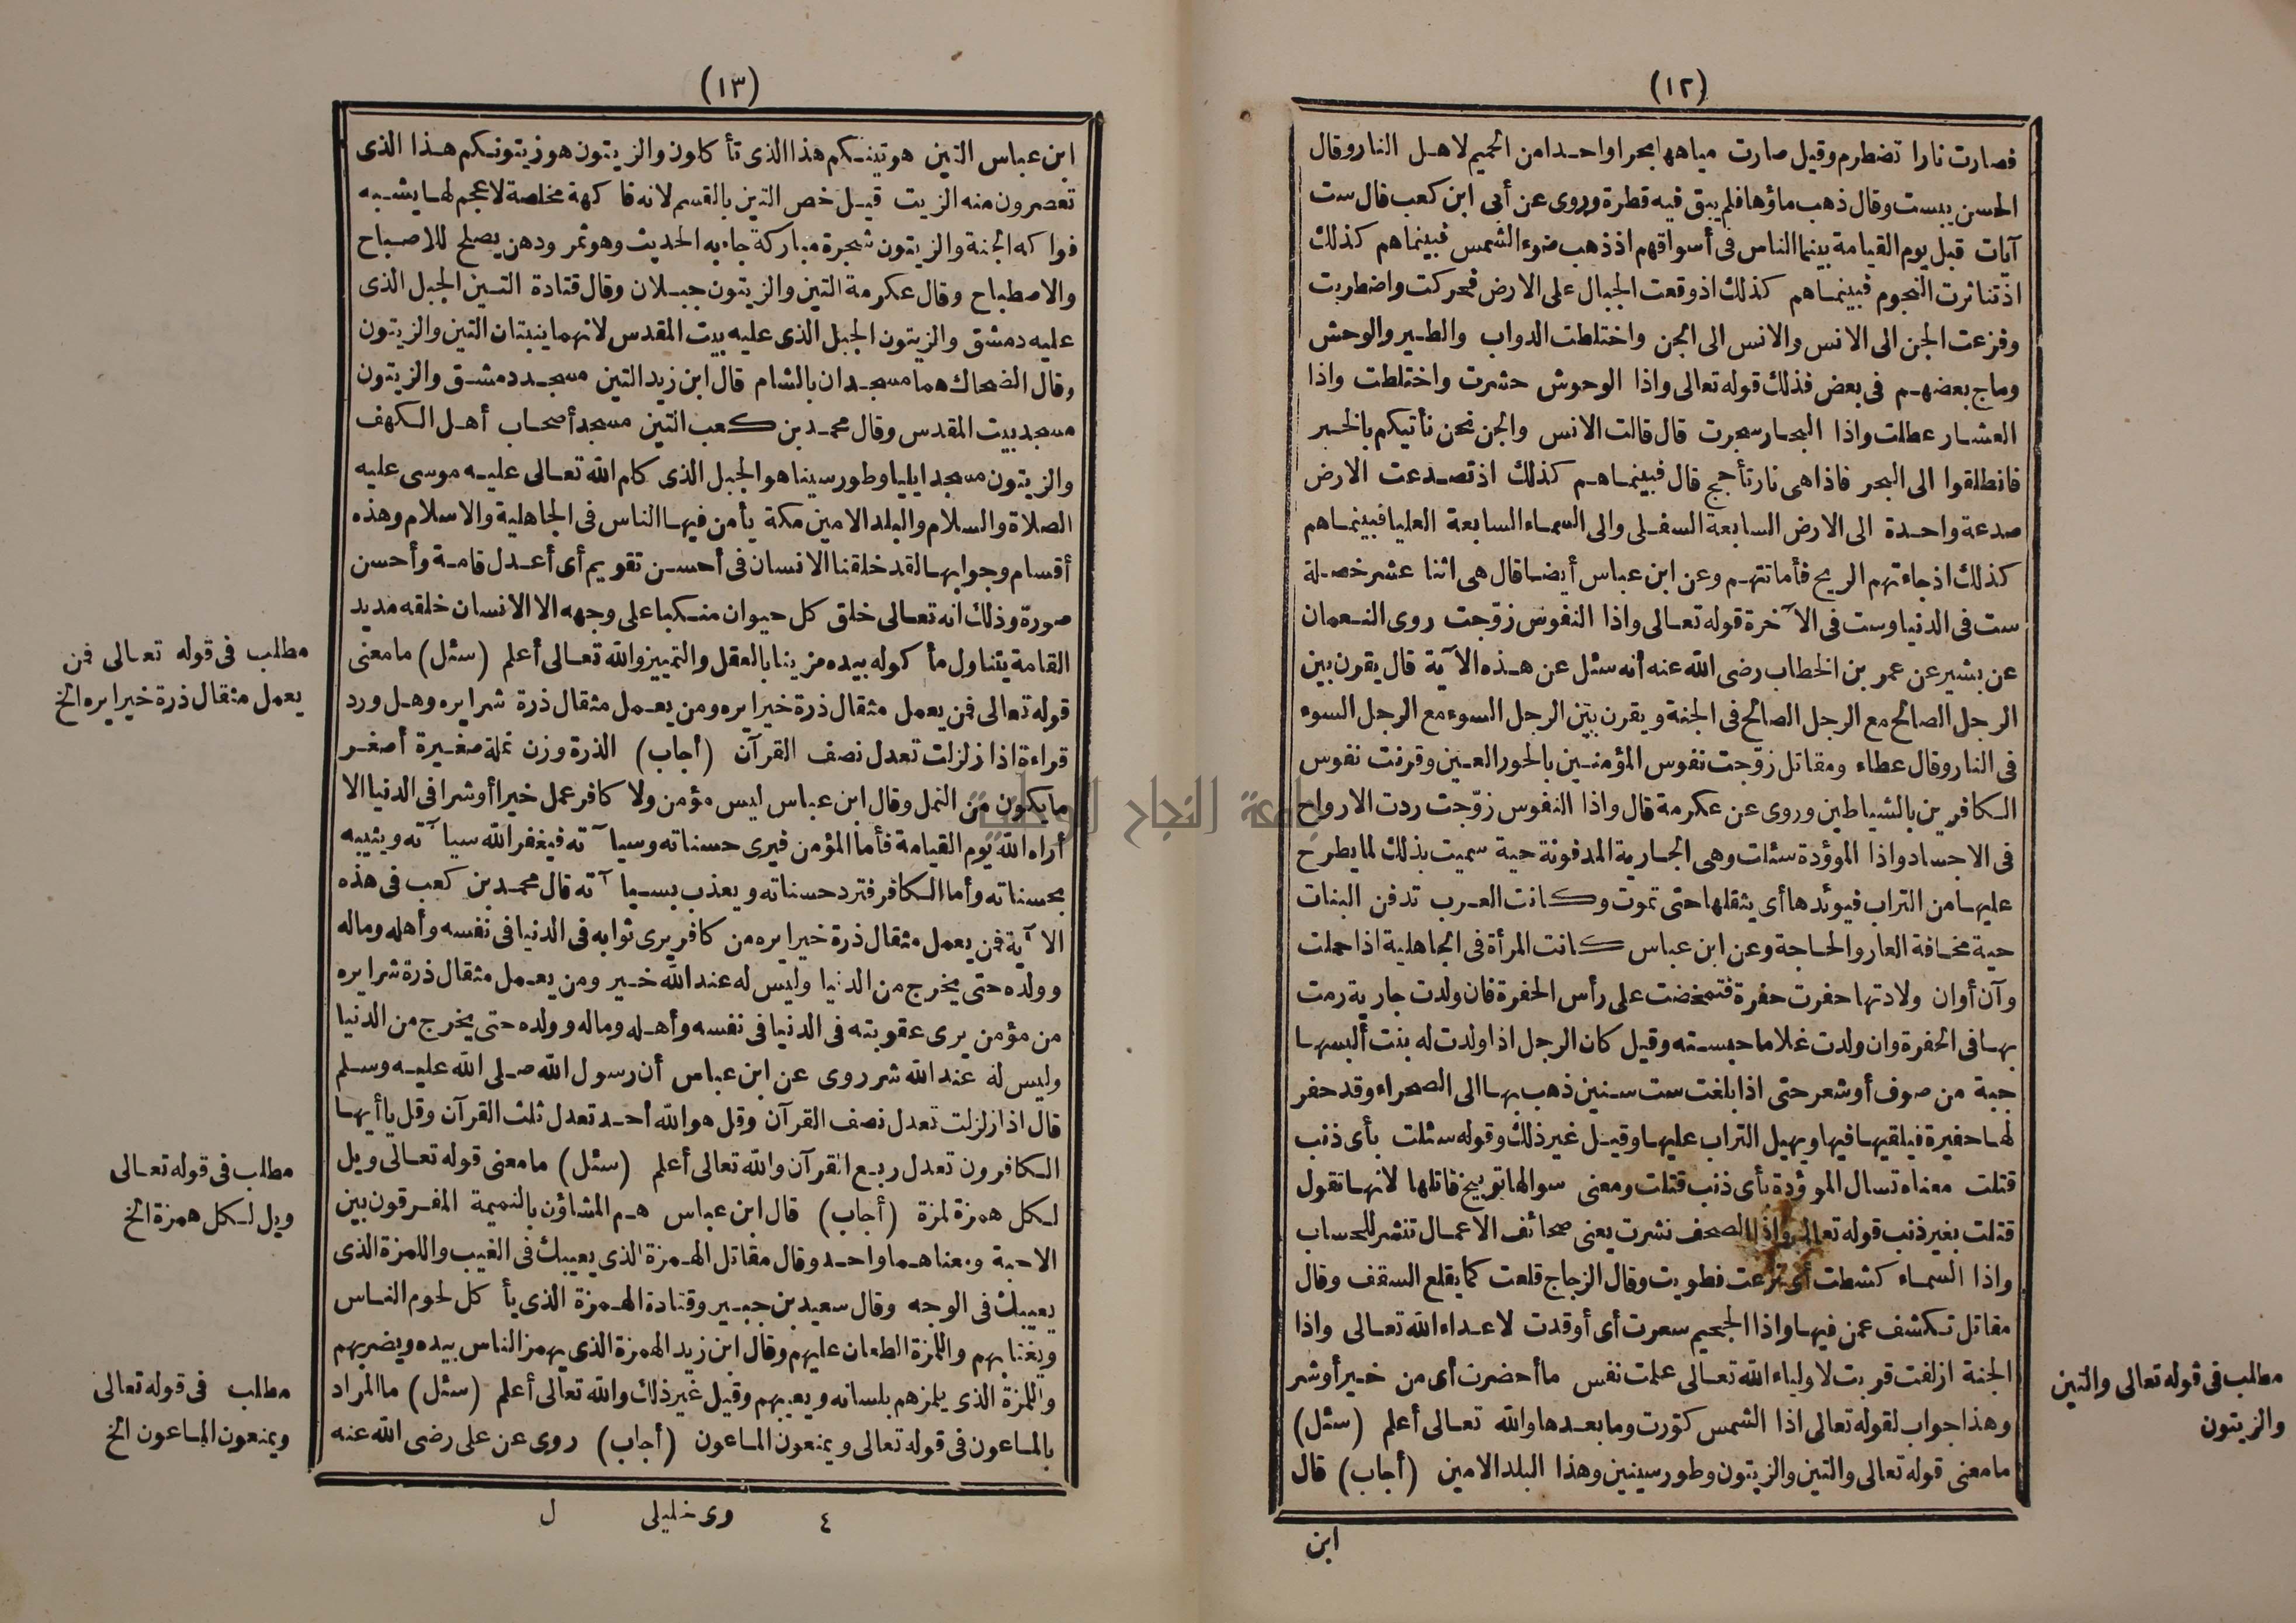 (١٢)
فصارت نارا تضطرم وقيل صارت مياهها بحرا واحدا من الحميم لاهل النار وقال
الحسن يبست وقال ذهب ماؤها فلم يبق فيه قطرة وروى عن أبى ابن كعب قال ست
آيات قبل يوم القيامة بينما الناس فى أسواقهم اذ ذهب ضوء الشمس فبينما هم كذلك
اذ تناثرت النجوم فبينما هم كذلك اذ وقعت الجبال على الارض فتحركت واضطربت
وفزعت الجن الى الانس والانس الى الجن واختلطت الدواب والطير والوحش
وماج بعضهم فى بعض فذلك قوله تعالى واذا الوحوش حشرت واختلطت واذا
العشار عطلت واذا البحار سجرت قال قالت الانس والجن نحن نأتيكم بالخبر
فانطلقوا الى البحر فاذا هى نار تأجج قال فبينما هم كذلك اذ تصدعت الارض
صدعة واحدة الى الارض السابعة السفلى والى السماء السابعة العليا فبينما هم
كذلك اذ جاءتهم الريح فأماتتهم وعن ابن عباس أيضا قال هى اثنا عشر خصلة
ست فى الدنيا وست فى الآخرة قوله تعالى واذا النفوس زوّجت روى النعمان
عن بشير عن عمر بن الخطاب رضى الله عنه أنه سئل عن هذه الآية قال يقرن بين
الرجل الصالح مع الرجل الصالح فى الجنة ويقرن بين الرجل السوء مع الرجل السوء
فى النار وقال عطاء ومقاتل زوّجت نفوس المؤمنين بالحور العين وقرنت نفوس
الكافرين بالشياطين وروى عن عكرمة قال واذا النفوس زوّجت ردت الارواح
فى الاجساد واذا الموؤدة سئلت وهى الجارية المدفونة حية سميت بذلك لما يطرح
عليها من التراب فيوئدها أى يثقلها حتى تموت وكانت العرب تدفن البنات
حية مخافة العار والحاجة وعن ابن عباس كانت المرأة فى الجاهلية اذا حملت
وآن أوان ولادتها حفرت حفرة فتمخضت على رأس الحفرة فان ولدت جارية رمت
بها فى الحفرة وان ولدت غلاما حبسته وقيل كان الرجل اذا ولدت له بنت ألبسها
جبة من صوف أو شعر حتى اذا بلغت ست سنين ذهب بها الى الصحراء وقد حفر
لها حفيرة فيلقيها فيها ويهيل التراب عليها وقيل غير ذلك وقوله سئلت بأى ذنب
قتلت معناه تسال الموؤدة بأى ذنب قتلت ومعنى سوالها توبيخ قاتلها لانها تقول
قتلت بغير ذنب قوله تعالى واذا الصحف نشرت يعنى صحائف الاعمال تنشر للحساب
واذا السماء كشطت أى نزعت فطويت وقال الزجاج قلعت كما يقلع السقف وقال
مقاتل تكشف عمن فيها واذا الجحيم سعرت أى أوقدت لاعداء الله تعالى واذا
الجنة ازلفت قربت لاولياء الله تعالى علمت نفس ما أحضرت أى من خير أو شر
وهذا جواب لقوله تعالى اذا الشمس كوّرت وما بعدها والله تعالى أعلم (سئل)
ما معنى قوله تعالى والتين والزيتون وطور سينين وهذا البلد الامين (أجاب) قال
ابن
مطلب فى قوله تعالى والتين
والزيتون
(١٣)
ابن عباس التين هو تينكم هذا الذى تأكلون والزيتون هو زيتونكم هذا الذى
تعصرون منه الزيت قيل خص التين بالقسم لانه فاكهة مخلصة لا عجم لها يشبه
فواكه الجنة والزيتون شجرة مباركة جاء به الحديث وهو ثمر ودهن يصلح للاصباح
والاصطباح وقال عكرمة التين والزيتون جبلان وقال قتادة التين الجبل الذى
عليه دمشق والزيتون الجبل الذى عليه بيت المقدس لانهما ينبتان التين والزيتون
وقال الضحاك هما مسجدان بالشام قال ابن زيد التين مسجد دمشق والزيتون
مسجد بيت المقدس وقال محمد بن كعب التين مسجد أصحاب أهل الكهف
والزيتون مسجد ايليا وطور سينا هو الجبل الذى كلم الله تعالى عليه موسى عليه
الصلاة والسلام والبلد الامين مكة يأمن فيها الناس فى الجاهلية والاسلام وهذه
أقسام وجوابها لقد خلقنا الانسان فى أحسن تقويم أى أعدل قامة وأحسن
صورة وذلك انه تعالى خلق كل حيوان منكبا على وجهه الا الانسان خلقه مديد
القامة يتناول مأكوله بيده مزينا بالعقل والتمييز والله تعالى أعلم (سئل) ما معنى
قوله تعالى فمن يعمل مثقال ذرة خيرا يره ومن يعمل مثقال ذرة شرا يره وهل ورد
قراءة اذا زلزلت تعدل نصف القرآن (أجاب) الذرة وزن نملة صغيرة أصغر
ما يكون من النمل وقال ابن عباس ليس مؤمن ولا كافر عمل خيرا أو شرا فى الدنيا الا
أراه الله يوم القيامة فأما المؤمن فيرى حسناته وسيآته فيغفر الله سيآته ويثيبه
بحسناته وأما الكافر فترد حسناته ويعذب بسيآته قال محمد بن كعب فى هذه
الآية فمن يعمل مثقال ذرة خيرا يره من كافر يرى ثوابه فى الدنيا فى نفسه وأهله وماله
وولده حتى يخرج من الدنيا وليس له عند الله خير ومن يعمل مثقال ذرة شرا يره
من مؤمن يرى عقوبته فى الدنيا فى نفسه وأهله وماله وولده حتى يخرج من الدنيا
وليس له عند الله شر روى عن ابن عباس أن رسول الله صلى الله عليه وسلم
قال اذا زلزلت تعدل نصف القرآن وقل هو الله أحد تعدل ثلث القرآن وقل يا أيها
الكافرون تعدل ربع القرآن والله تعالى أعلم (سئل) ما معنى قوله تعالى ويل
لكل همزة لمزة (أجاب) قال ابن عباس هم المشاؤن بالنميمة المفرقون بين
الاحبة ومعناهما واحد وقال مقاتل الهمزة الذى يعيبك فى الغيب واللمزة الذى
يعيبك فى الوجه وقال سعيد بن جبير وقتادة الهمزة الذى يأكل لحوم الناس
ويغتابهم واللمزة الطعان عليهم وقال ابن زيد الهمزة الذى يهمز الناس بيده ويضربهم
واللمزة الذى يلمزهم بلسانه ويعيبهم وقيل غير ذلك والله تعالى أعلم (سئل) ما المراد
بالماعون فى قوله تعالى ويمنعون الماعون (أجاب) روى عن على رضى الله عنه
٤ وى خليلى ل
مطلب فى قوله تعالى فمن
يعمل مثقال ذرة خيرا يره الخ
مطلب فى قوله تعالى
ويل لكل همزة الخ
مطلب فى قوله تعالى
ويمنعون الماعون الخ
جامعة النجاح الوطنية